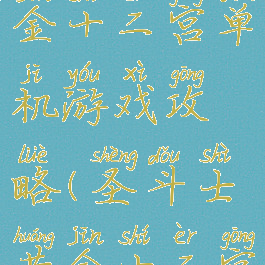 金十二宫单
jī yóu xì gōng
机游戏攻
lüè shèng dòu shì
略(圣斗士
huáng jīn shí èr gōng